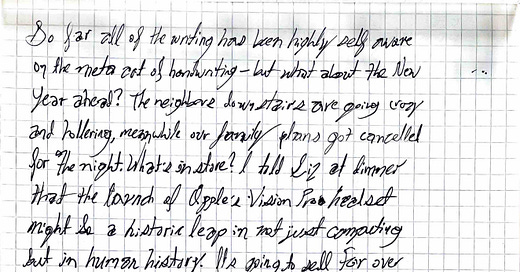 So far all of the writing has been highly self aware
on the meta act of handwriting - but what about the New ...
Year ahead? The neighbors downstairs are going crazy
and hollering, meanwhile our family plans got cancelled
for the night. What's in store? I told Liz at dinner
that the launch of Apple's Vision Pro headset
might be a historic leap in not just computing
but in human history. It's going to sell for over